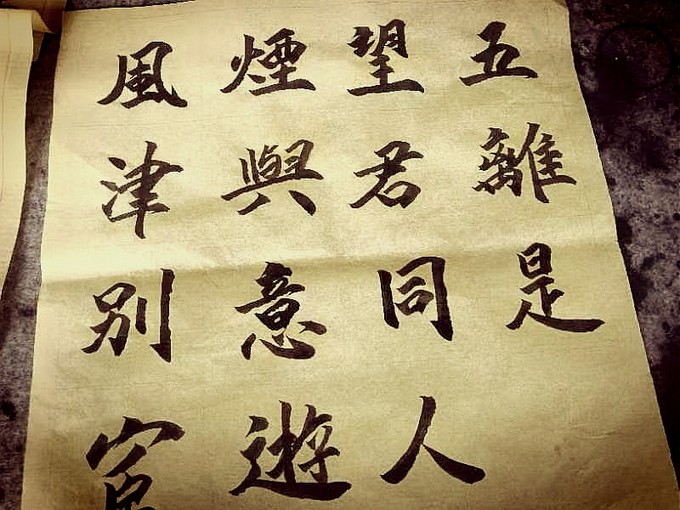 風煙望五
津與君離
別意同是
宦遊人